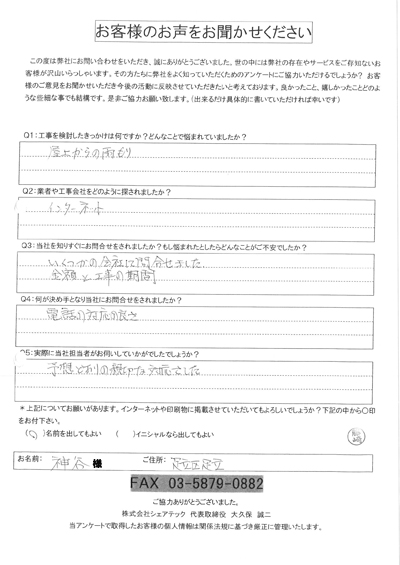 お客様のお声をお聞かせください
この度は弊社にお問い合わせをいただき、誠にありがとうございました。世の中には弊社の存在やサービスをご存知ないお
客様が沢山いらっしゃいます。その方たちに弊社をよく知っていただくためのアンケートにご協力いただけるでしょうか？ お客
様のご意見をお聞かせいただき今後の活動に反映させていただきたいと考えております。良かったこと、嬉しかったことどのよ
うな些細な事でも結構です。是非ご協力お願い致します。(出来るだけ具体的に書いていただければ幸いです)
Q1:工事を検討したきっかけは何ですか？どんなことで悩まれていましたか？
屋上からの雨もり
Q2:業者や工事会社をどのように探されましたか？
インターネット
Q3:当社を知りすぐにお問合せをされましたか？もし悩まれたとしたらどんなことがご不安でしたか？
いくつかの会社に問合せました
金額と工事の期間
Q4:何が決め手となり当社にお問合せをされましたか？
電話の対応の良さ
Q5:実際に当社担当者がお伺いしていかがでしたでしょうか？
予想どおりの親切な対応でした
＊上記についてお願いがあります。インターネットや印刷物に掲載させていただいてもよろしいでしょうか？下記の中から〇印
をお付下さい。
(○)名前を出してもよい ( )イニシャルなら出してもよい
お名前: 神谷 様 ご住所: 足立区足立
FAX 03-5879-0882
ご協力ありがとうございました。
株式会社シェアテック 代表取締役 大久保 誠二
当アンケートで取得したお客様の個人情報は関係法規に基づき厳正に管理いたします。